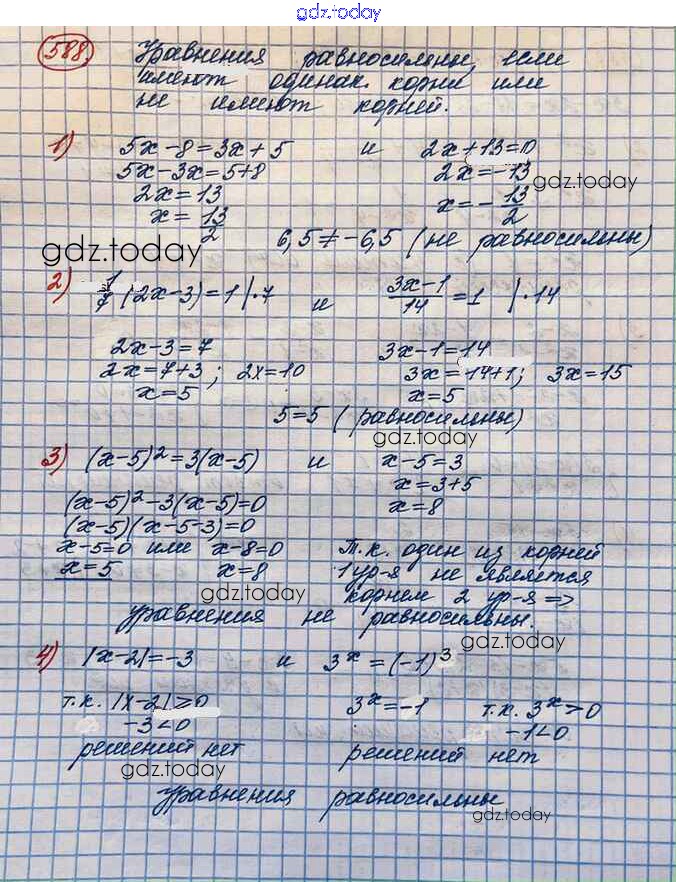 gdz.today
588. Уравнения равносильны, если
имеют одинак. корни или
не имеют корней.
1) 5x-8=3x+5 и 2x+13=0
5x-3x=5+8 2x=-13
gdz.today
2x=13 x=-13/2
x=13/2
6,5≠-6,5 (не равносильны)
gdz.today
2) 1/7 (2x-3)=1 |·7 и (3x-1)/14=1 |·14
2x-3=7 3x-1=14
2x=7+3; 2x=10 3x=14+1; 3x=15
x=5 x=5
5=5 (равносильны)
gdz.today
3) (x-5)²=3(x-5) и x-5=3
x=3+5
(x-5)²-3(x-5)=0 x=8
(x-5)(x-5-3)=0
x-5=0 или x-8=0 Т.к. один из корней
x=5 x=8 1 ур-я не является
gdz.today
корнем 2 ур-я =>
уравнения не равносильны.
gdz.today
4) |x-2|=-3 и 3ˣ=(-1)³
т.к. |x-2|≥0 3ˣ=-1 т.к. 3ˣ>0
-3<0 -1<0
решений нет решений нет
gdz.today
уравнения равносильны
gdz.today